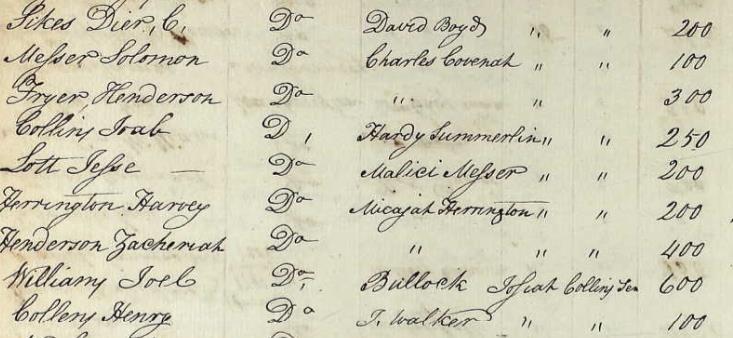 Sikes Dier, C, Do David Boyd " " 200
Messer Solomon Do Charles Covenah " " 100
Fryer Henderson Do " " 300
Collins Joab D, Hardy Summerlin " " 250
Lott Jesse — Do Malici Messer " " 200
Herrington Harvey Do Micajah Herrington " " 200
Henderson Zacheriah Do " " " 400
Williams Joel Do, Bullock Josiah Collins Sen 600
Collens Henry Do J. Walker " " 100